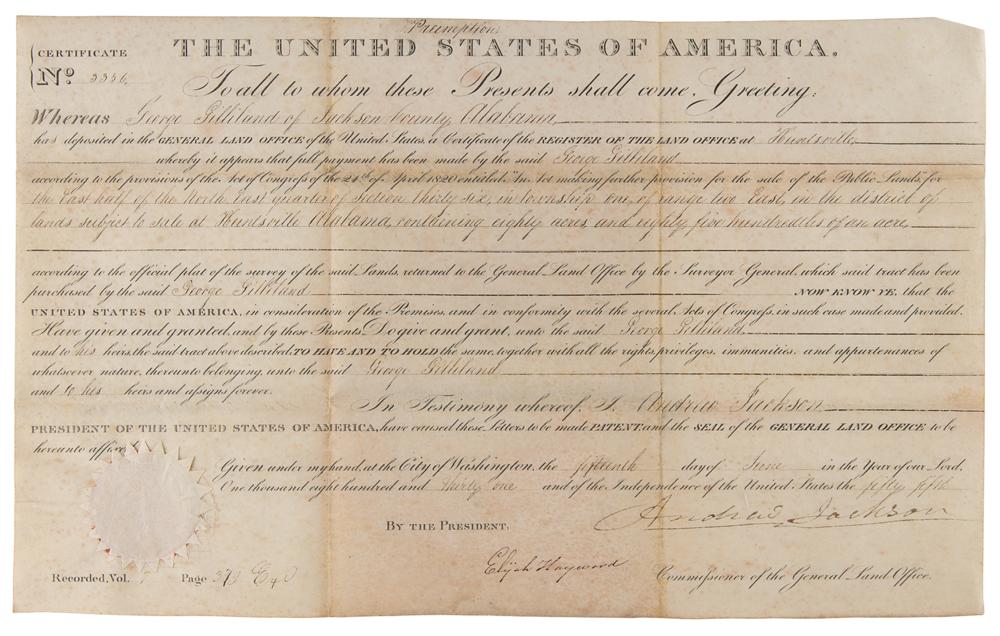 Preemption
CERTIFICATE
No. 3356
THE UNITED STATES OF AMERICA.
To all to whom these Presents shall come, Greeting:
WHEREAS George Gilliland of Jackson County, Alabama
has deposited in the GENERAL LAND OFFICE of the United States, a Certificate of the REGISTER OF THE LAND OFFICE at Huntsville
whereby it appears that full payment has been made by the said George Gilliland
according to the provisions of the Act of Congress of the 24th of April 1820 entitled "An Act making further provision for the sale of the Public Lands," for
the East half of the North East quarter of Section thirty six, in township one, of range two East, in the district of
lands subject to sale at Huntsville Alabama, containing eighty acres, and eighty five hundredths of an acre,
according to the official plat of the survey of the said Lands, returned to the General Land Office by the Surveyor General, which said tract has been
purchased by the said George Gilliland NOW KNOW YE, that the
UNITED STATES OF AMERICA, in consideration of the Premises, and in conformity with the several Acts of Congress, in such case made and provided,
Have given and granted, and by these Presents Do give and grant, unto the said George Gilliland
and to his heirs, the said tract above described; TO HAVE AND TO HOLD the same, together with all the rights, privileges, immunities, and appurtenances of
whatsoever nature, thereunto belonging, unto the said George Gilliland
and to his heirs and assigns forever.
In Testimony whereof, I, Andrew Jackson
PRESIDENT OF THE UNITED STATES OF AMERICA, have caused these Letters to be made PATENT, and the SEAL of the GENERAL LAND OFFICE to be
hereunto affixed.
Given under my hand, at the City of Washington, the fifteenth day of June in the Year of our Lord
One thousand eight hundred and thirty one and of the Independence of the United States the fifty fifth
Andrew Jackson
BY THE PRESIDENT,
Elijah Hayward
Commissioner of the General Land Office.
Recorded, Vol. Page 370